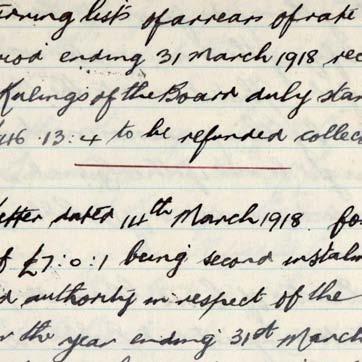 urning lists of arrears of rate
riod ending 31 March 1918 rec
Rulings of the Board duly star
16 : 13 : 4 to be refunded collec
letter dated 14th March 1918 fo
of £7 : 0 : 1 being second instalm
d authority in respect of the
r the year ending 31st March